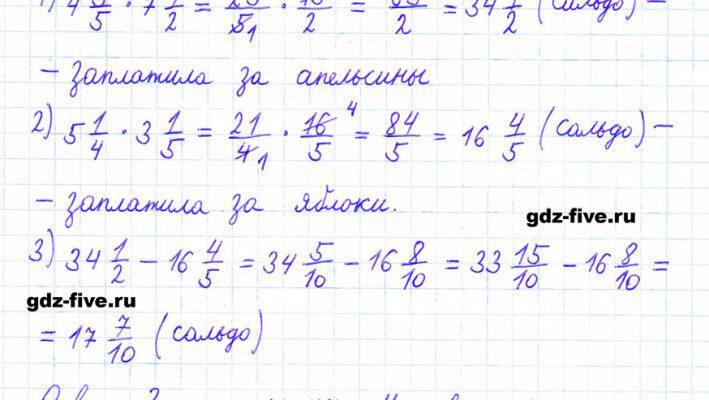 1) 4 3/5 · 7 1/2 = 23/5 1 · 15/2 = 69/2 = 34 1/2 (сальдо) –
– заплатила за апельсины
2) 5 1/4 · 3 1/5 = 21/4 1 · 16 4/5 = 84/5 = 16 4/5 (сальдо) –
– заплатила за яблоки.
gdz-five.ru
3) 34 1/2 – 16 4/5 = 34 5/10 – 16 8/10 = 33 15/10 – 16 8/10 =
gdz-five.ru
= 17 7/10 (сальдо)